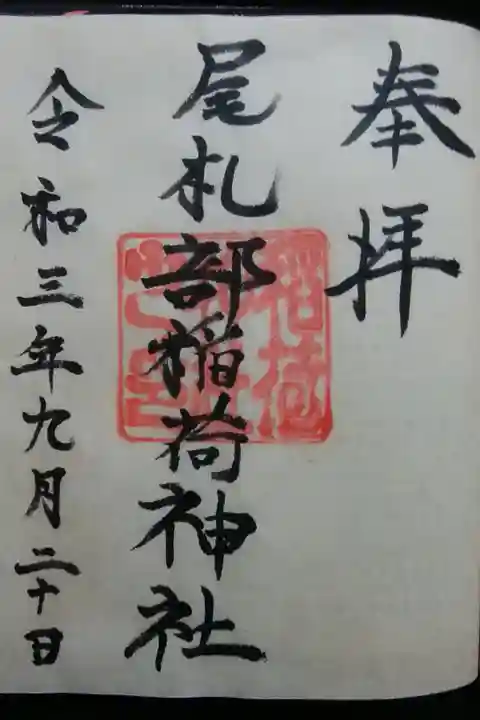 奉拝
尾札部稲荷神社
令和三年九月二十日